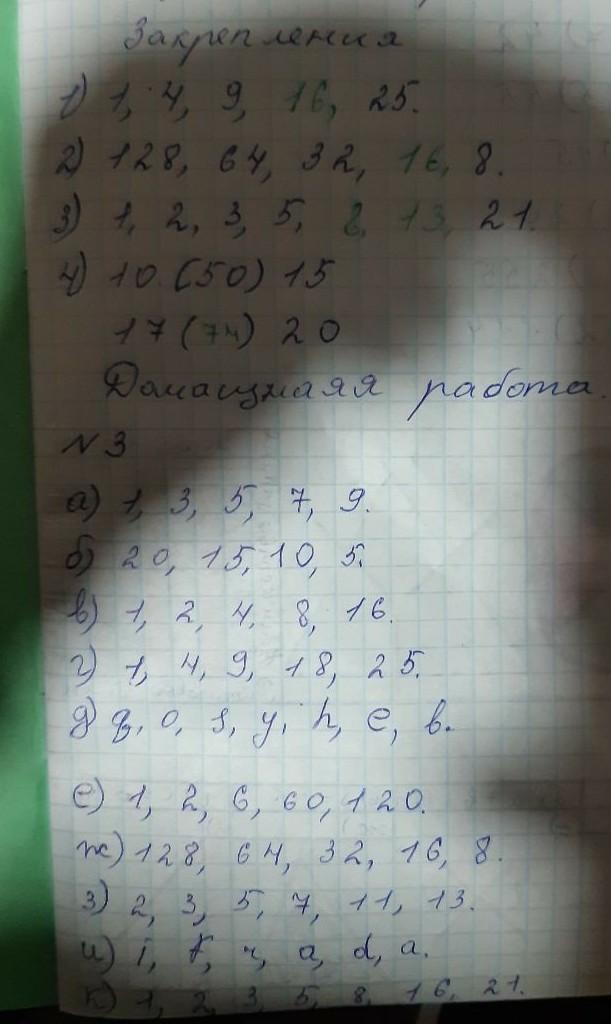 Закрепления
1) 1, 4, 9, 16, 25.
2) 128, 64, 32, 16, 8.
3) 1, 2, 3, 5, 8, 13, 21.
4) 10 (50) 15
17 (74) 20
Домащняяя работа.
N3
а) 1, 3, 5, 7, 9.
б) 20, 15, 10, 5.
в) 1, 2, 4, 8, 16.
г) 1, 4, 9, 18, 25.
д) о, у, h, e, в.
е) 1, 2, 6, 60, 120.
ж) 128, 64, 32, 16, 8.
з) 2, 3, 5, 7, 11, 13.
и) i, a, d, a.
к) 1, 2, 3, 5, 8, 16, 21.